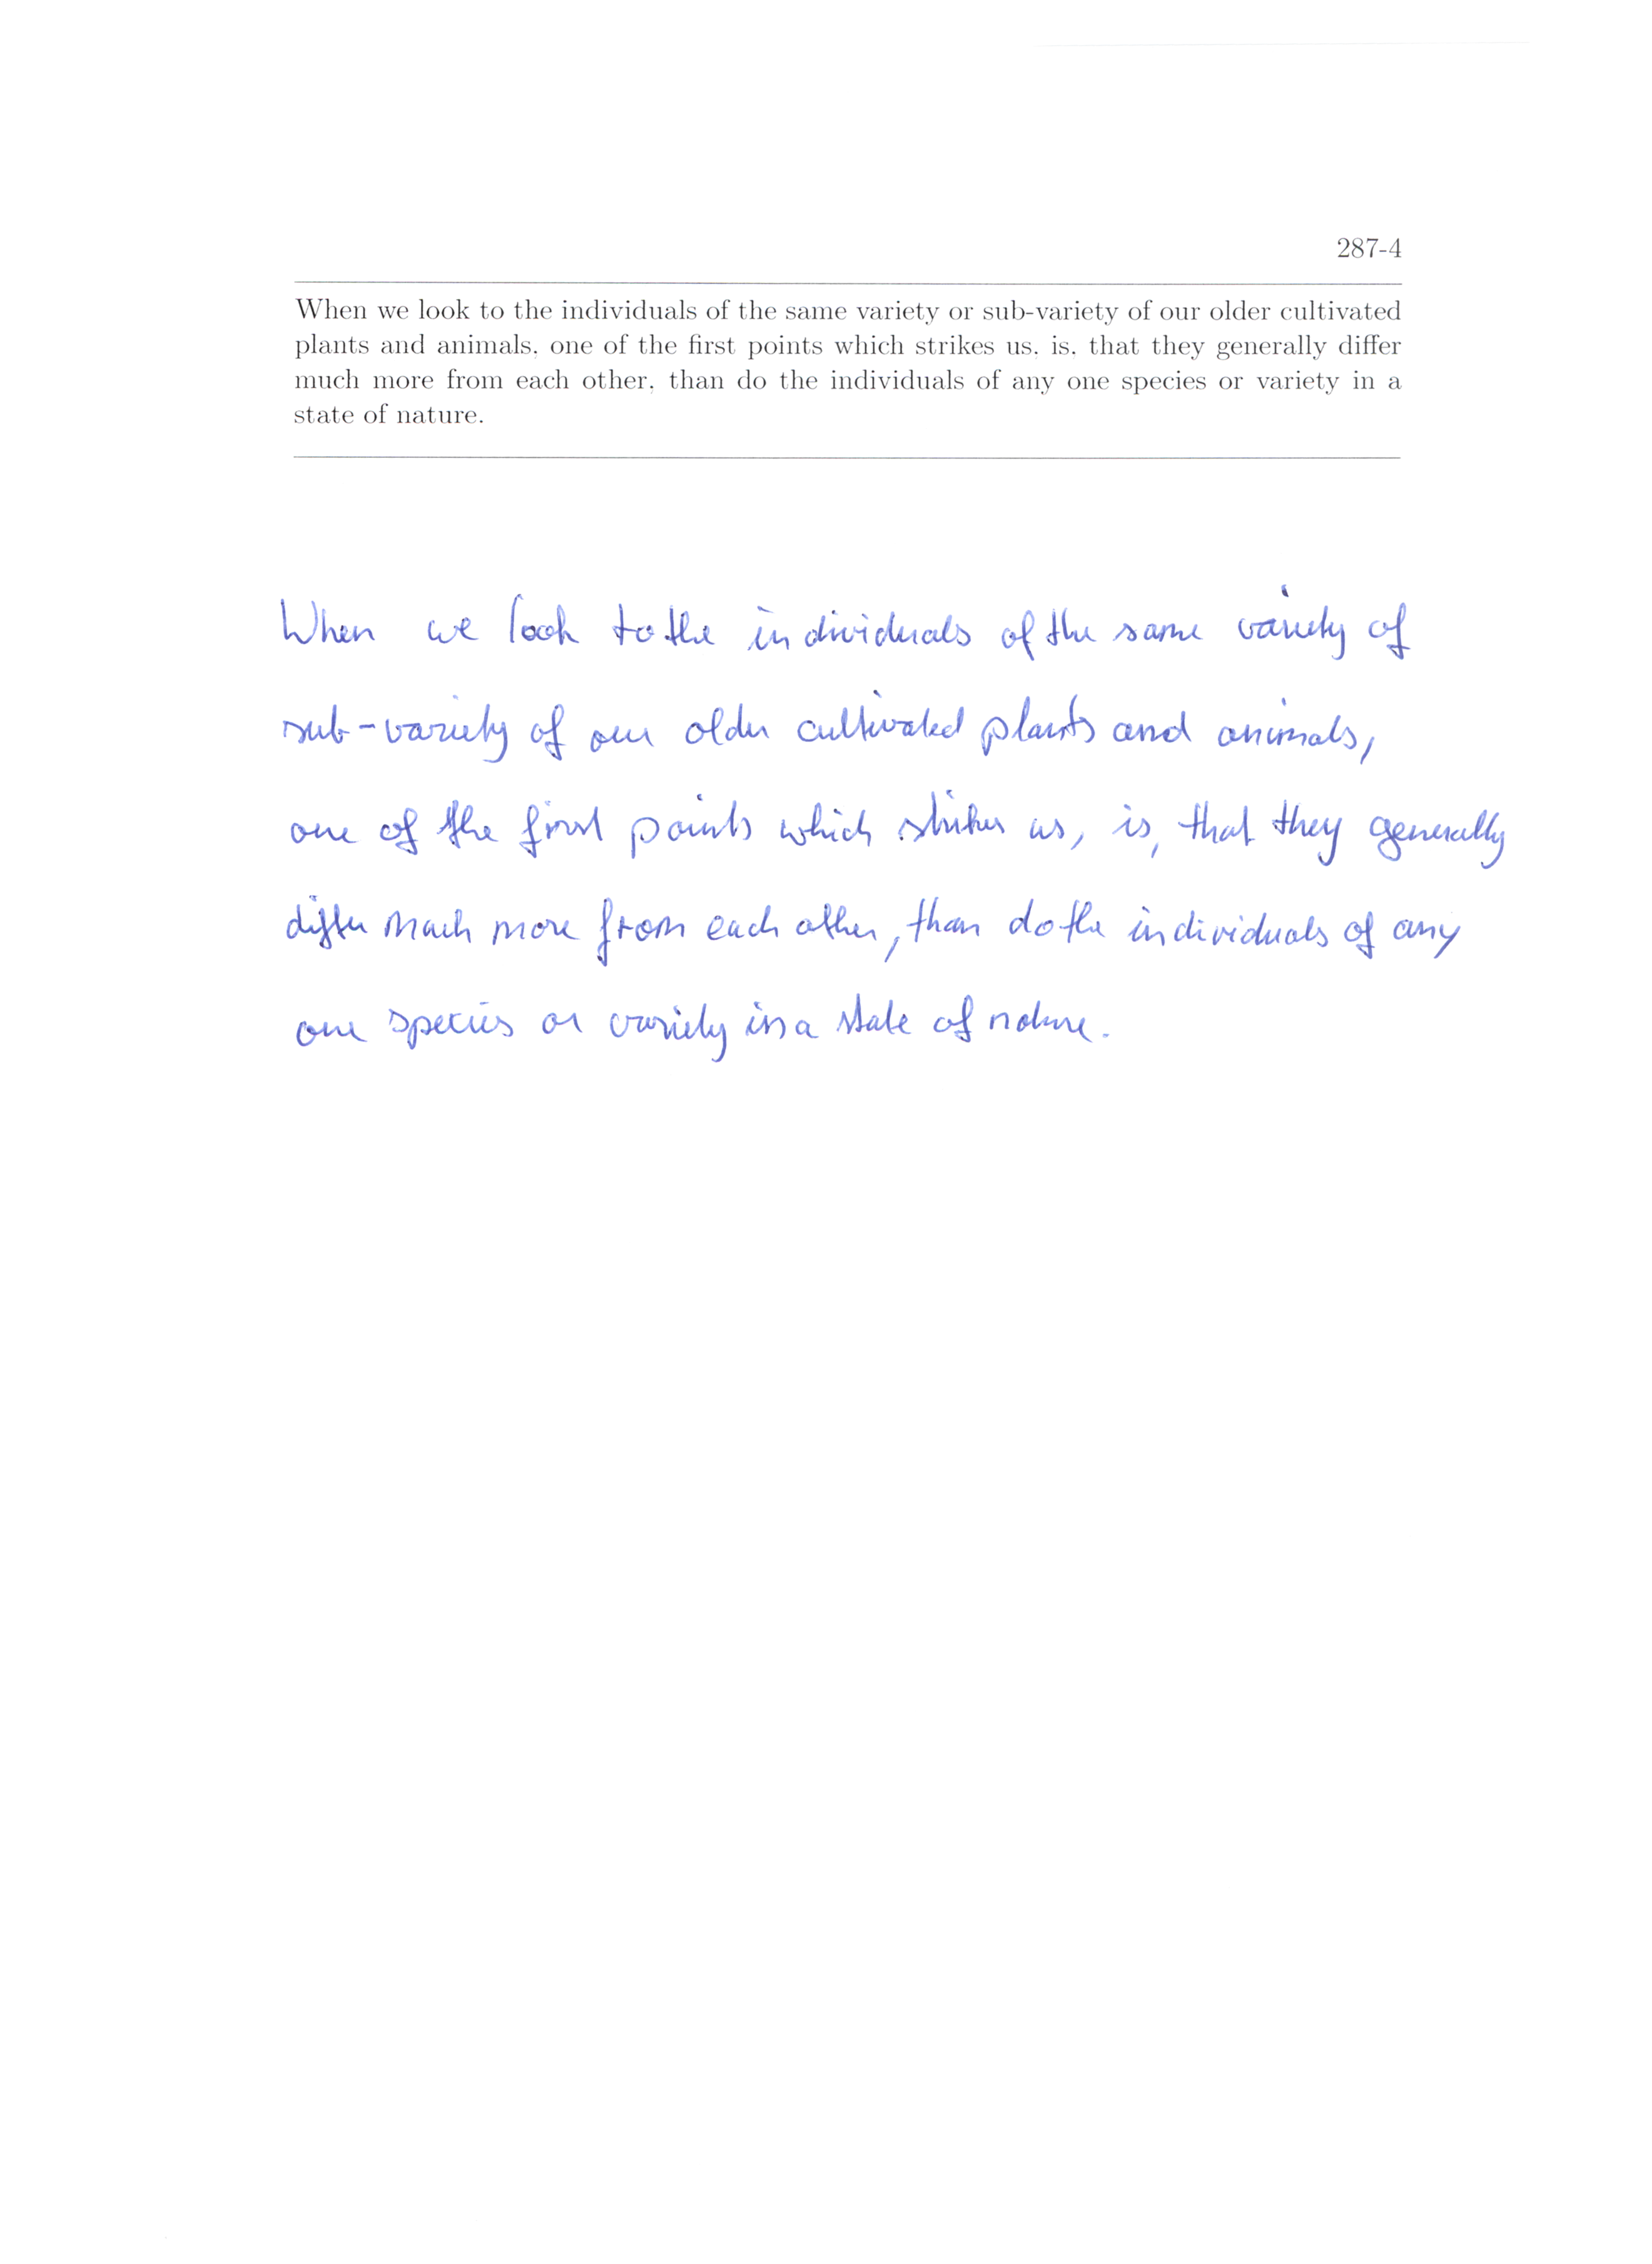 287-4
When we look to the individuals of the same variety or sub-variety of our older cultivated
plants and animals, one of the first points which strikes us, is, that they generally differ
much more from each other, than do the individuals of any one species or variety in a
state of nature.
When we look to the individuals of the same variety of
sub-variety of our older cultivated plants and animals,
one of the first points which strikes us, is, that they generally
differ much more from each other, than do the individuals of any
one species or variety in a state of nature.